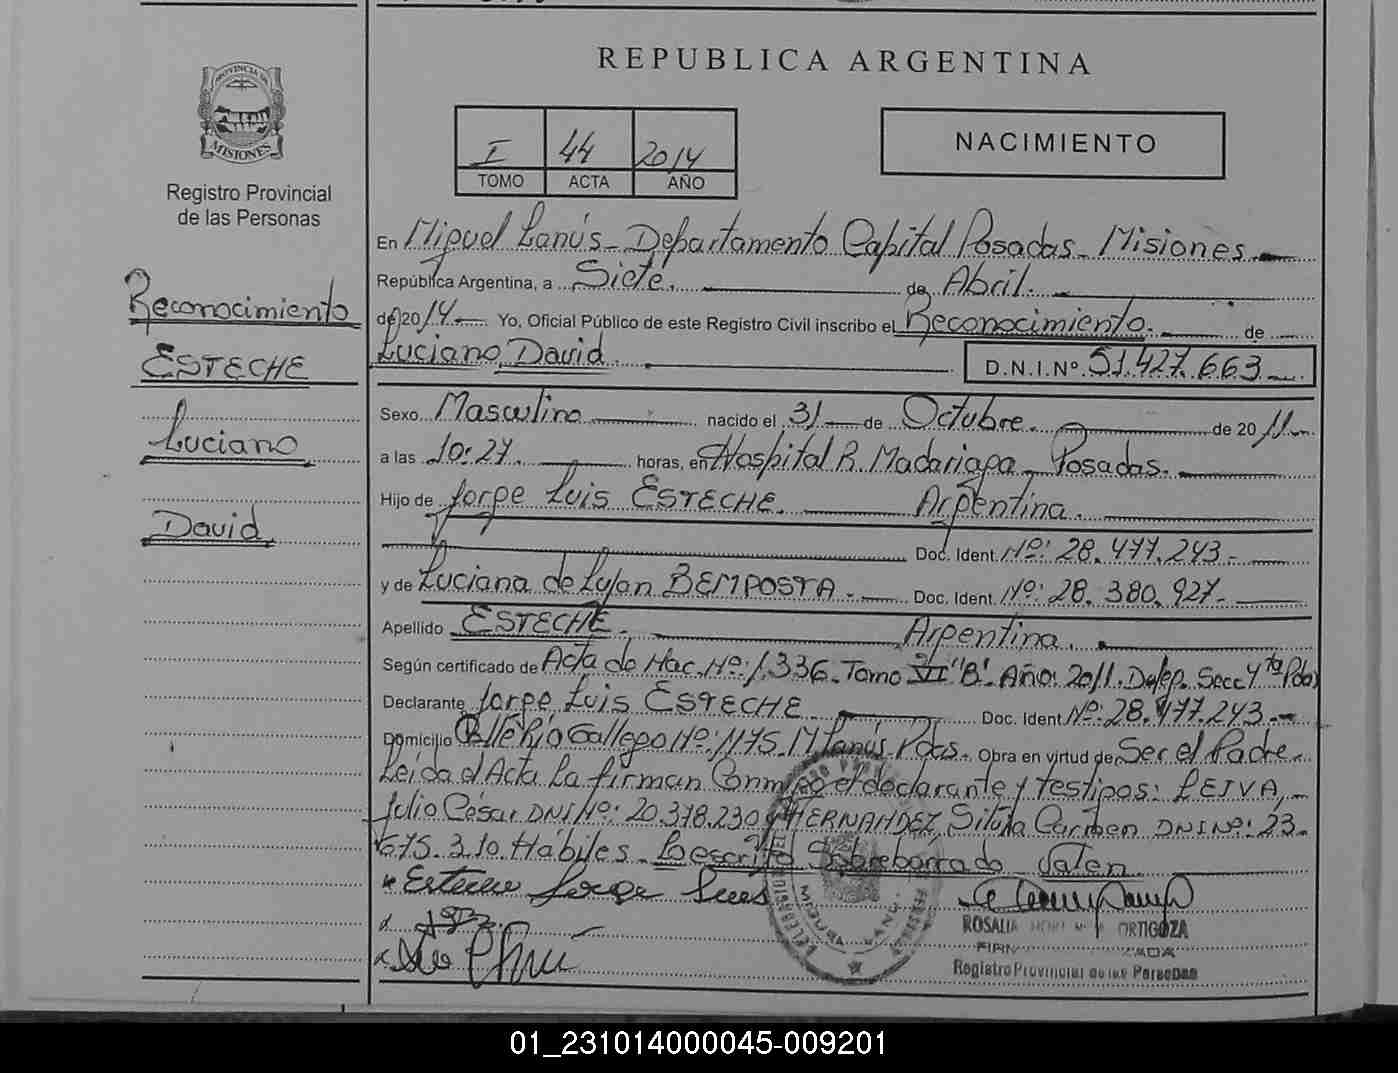 REPUBLICA ARGENTINA
PROVINCIA DE
MISIONES
Registro Provincial
de las Personas
I 44 2014
TOMO ACTA AÑO
NACIMIENTO
Reconocimiento
ESTECHE
Luciano
David
En Miguel Lanús - Departamento Capital Posadas - Misiones
República Argentina, a Siete de Abril.
de 2014 Yo, Oficial Público de este Registro Civil inscribo el Reconocimiento. de
Luciano David D.N.I.Nº 51.427.663
Sexo Masculino nacido el 31 de Octubre. de 2011
a las 10:27. horas, en Hospital R. Madariaga - Posadas.
Hijo de Jorge Luis ESTECHE. Argentina.
Doc. Ident. Nº: 28.477.243
y de Luciana de Lujan BEMPOSTA. Doc. Ident. Nº: 28.380.927
Apellido ESTECHE. Argentina.
Según certificado de Acta de Nac. Nº: 1.336. Tomo VI "B". Año: 2011. Deleg. Secc 4ta Pdas
Declarante Jorge Luis ESTECHE Doc. Ident Nº: 28.477.243
Domicilio Calle Rio Gallego Nº: 1175. M Lanús Pdas. Obra en virtud de Ser el Padre.
Leída el Acta La firman Conmigo el declarante y testigos: LEIVA,
Julio César DNI Nº: 20.378.230 y HERNANDEZ, Carmen DNI Nº: 23.
675.310. Hábiles. Lo escrito Sobreborrado Valen.
Jorge Luis
ROSALIA ORTIGOZA
Registro Provincial de las Personas
01_231014000045-009201